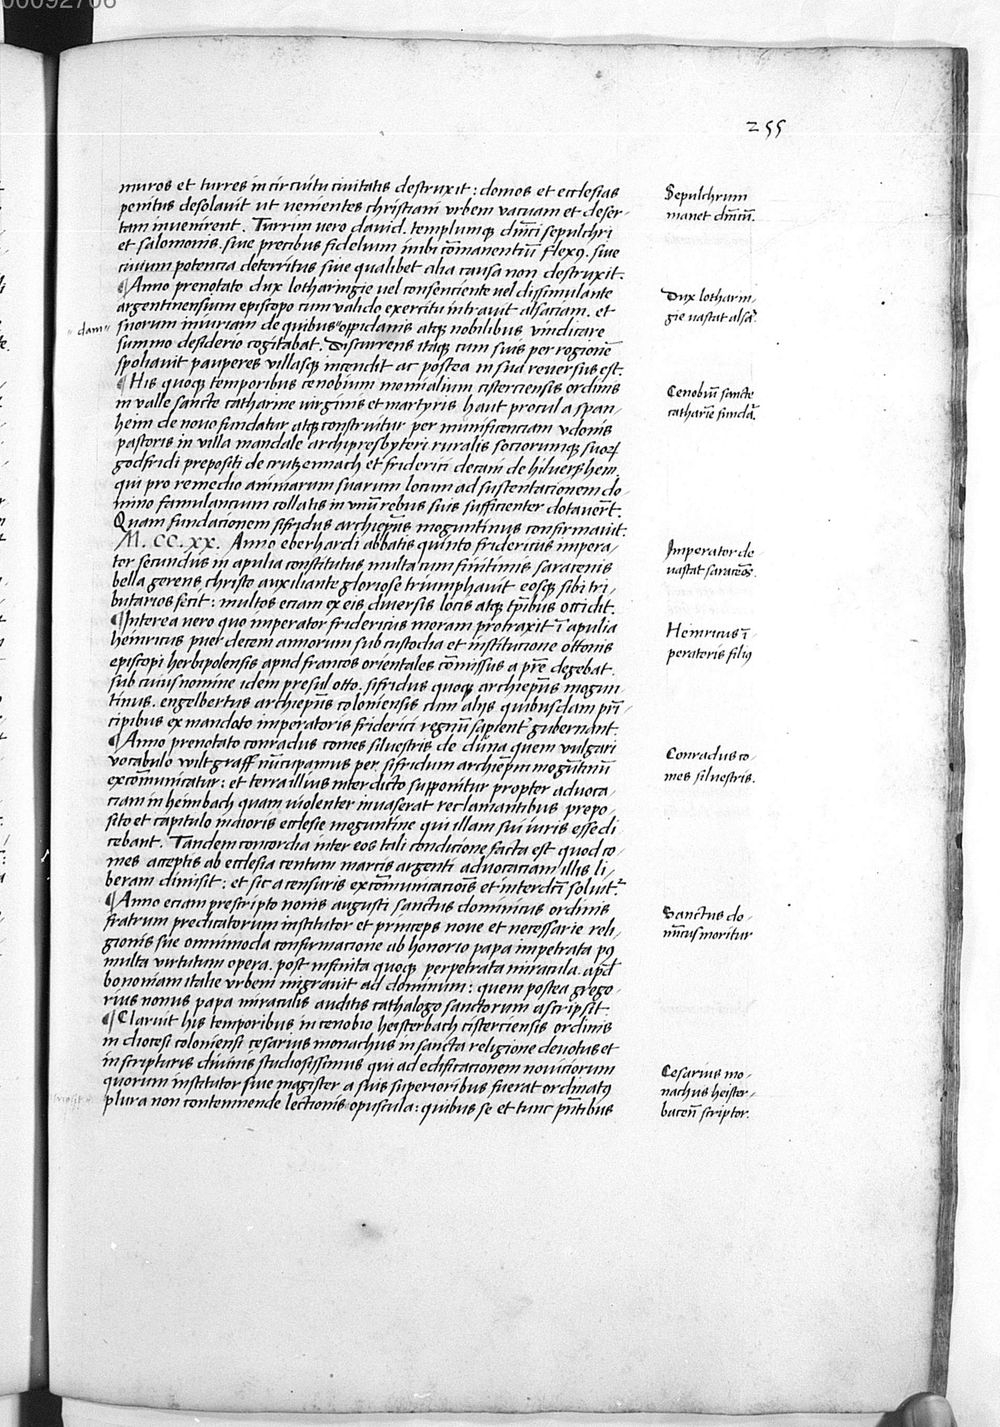 00092706
255
muros et turres in circuitu civitatis destruxit : domos et ecclesias
penitus desolavit ut venientes christiani vrbem vacuam et deser-
tam invenirent . Turrim vero david . templumqȝ dn̄ici sepulchri
et salomonis . sive precibus fidelium inibi cōmanentiū flexꝯ . sive
civium potencia deterritus sive qualibet alia causa non destruxit .
¶ Anno prenotato dux lotharingie vel consenciente vel dissimulante
argentinensium episcopo cum valido exercitu intravit alsaciam . et
suorum iniuriam de quibus oppidanis atqȝ nobilibus vindicare
summo desiderio cogitabat . Discurrens itaqȝ cum suis per regionē
spoliavit pauperes villasqȝ incendit ac postea in sua reversus est .
¶ His quoqȝ temporibus cenobium monialium cisterciensis ordinis
in valle sancte catharine virginis et martyris haut procul a span-
heim de novo fundatur atqȝ construitur per munificenciam vdonis
pastoris in villa mandale archipresbyteri ruralis sociorumqȝ suorꝝ
godfridi prepositi de crutzennach et friderici decani de hilversheim
qui pro remedio animarum suarum locum ad sustentacionem do-
mino famulancium collatis in vnū rebus suis sufficienter dotavēt .
Quam fundacionem sifridus archiep̄us moguntinus confirmavit .
M . CC . XX . Anno eberhardi abbatis quinto fridericus impera-
tor secundus in apulia constitutus multa cum finitimis saracenis
bella gerens christo auxiliante gloriose triumphavit eosqȝ sibi tri-
butarios fecit : multos eciam ex eis diversis locis atqȝ tp̄ibus occidit .
¶ Interea vero quo imperator fridericus moram protraxit ī apulia
heinricus puer decem annorum sub custodia et institucione ottonis
episcopi herbipolensis apud francos orientales cōmissus a pr̄e degebat .
sub cuius nomine idem presul otto . sifridus quoqȝ archiep̄us mogun-
tinus . engelbertus archiep̄us coloniensis cum alijs quibusdam prī-
cipibus ex mandato imperatoris friderici regnū sapient̾ gubernant .
¶ Anno prenotato conradus comes silvestris de duna quem vulgari
vocabulo wiltgraff nūcupamus per sifridum archiep̄m mogūtinū
excōmunicatur : et terra illius interdicto supponitur propter advoca-
ciam in heimbach quam violenter invaserat reclamantibus prepo-
sito et capitulo maioris ecclesie moguntine qui illam sui iuris esse di-
cebant . Tandem concordia inter eos tali condicione facta est quod co-
mes acceptis ab ecclesia centum marcis argenti advocaciam illis li-
beram dimisit : et sic a censuris excōmunicaciois et interdicti solvit̾ .
¶ Anno eciam prescripto nonis augusti sanctus dominicus ordinis
fratrum predicatorum institutor et princeps nove et necessarie reli-
gionis sue omnimoda confirmacione ab honorio papa impetrata pꝯ
multa virtutum opera . post infinita quoqȝ perpetrata miracula . apd̄
bononiam italie vrbem migravit ad dominum : quem postea grego-
rius nonus papa miraculis auditis cathalogo sanctorum ascripsit .
¶ Claruit his temporibus in cenobio heisterbach cisterciensis ordinis
in diocesi coloniensi cesarius monachus in sancta religione devotus et
in scripturis divinis studiosissimus qui ad edificacionem noviciorum
quorum institutor sive magister a suis superioribus fuerat ordinatꝯ
plura non contemnende lectionis opuscula : quibus se et tunc pn̄tibus
dam
Sepulchrum
manet dn̄icū .
Dux lotharin-
gie vastat alsā .
Cenobiū sancte
catharīe fundā .
Imperator de-
vastat saracēos .
Heinricus ī-
peratoris filiꝯ
Conradus co-
mes silvestris .
Sanctus do-
mīcus moritur
Cesarius mo-
nachus heister-
bacen̄ scriptor .